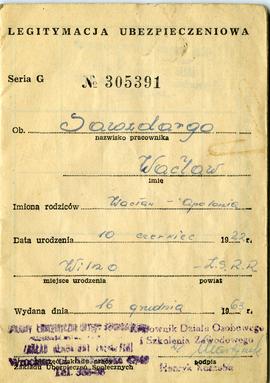 LEGITYMACJA UBEZPIECZENIOWA
Seria G № 305391
Ob. Sawzdargo
nazwisko pracownika
Wacław
imię
Imiona rodziców Wacław - Apolonia
Data urodzenia 10 czerwiec 1922 r.
Wilno - Z.S.R.R
miejsce urodzenia powiat
Wydana dnia 16 grudnia 1963 r.
Kierownik Działu Osobowego
i Szkolenia Zawodowego
podpis
Zakładu Ubezpieczeń Społecznych
Henryk